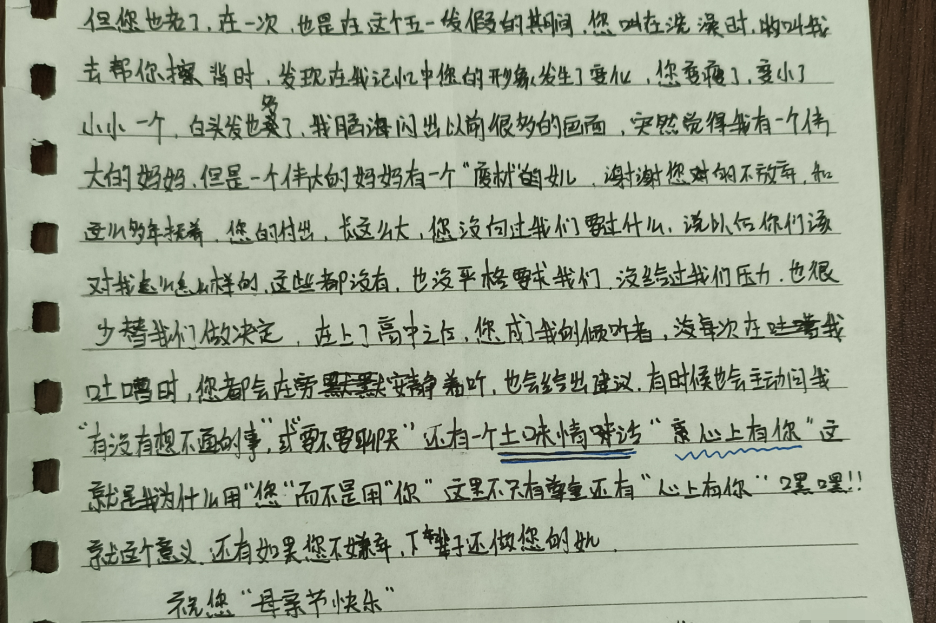 但您也老了,在一次,也是在这个五一放假的其间,您叫在洗澡时,妳叫我
去帮你擦,当时,发现在我记忆中您的形象发生了变化,您变瘦了,变小了
小小一个,白头发也多了,我脑海闪出以前很多的画面,突然觉得我有一个伟
大的妈妈,但是一个伟大的妈妈有一个"废材"的女儿,谢谢您对的不放弃,和
这么多年抚养,您的付出,长这么大,您没向过我们要过什么,说以后你们该
对我怎么怎么样的,这些都没有,也没严格要求我们,没给过我们压力,也很
少替我们做决定,在上了高中之后,您成了我的倾听者,没每次在吐嘈我
吐嘈时,您都会在旁安静着听,也会给出建议,有时候也会主动问我
"有没有想不通的事",或"要不要聊天"还有一个土味情味话"意心上有你"这
就是我为什么用"您"而不是用"你"这里不只有尊重还有"心上有你"嘿嘿!!
就这个意义,还有如果您不嫌弃,下辈子还做您的女儿.
祝您"母亲节快乐"